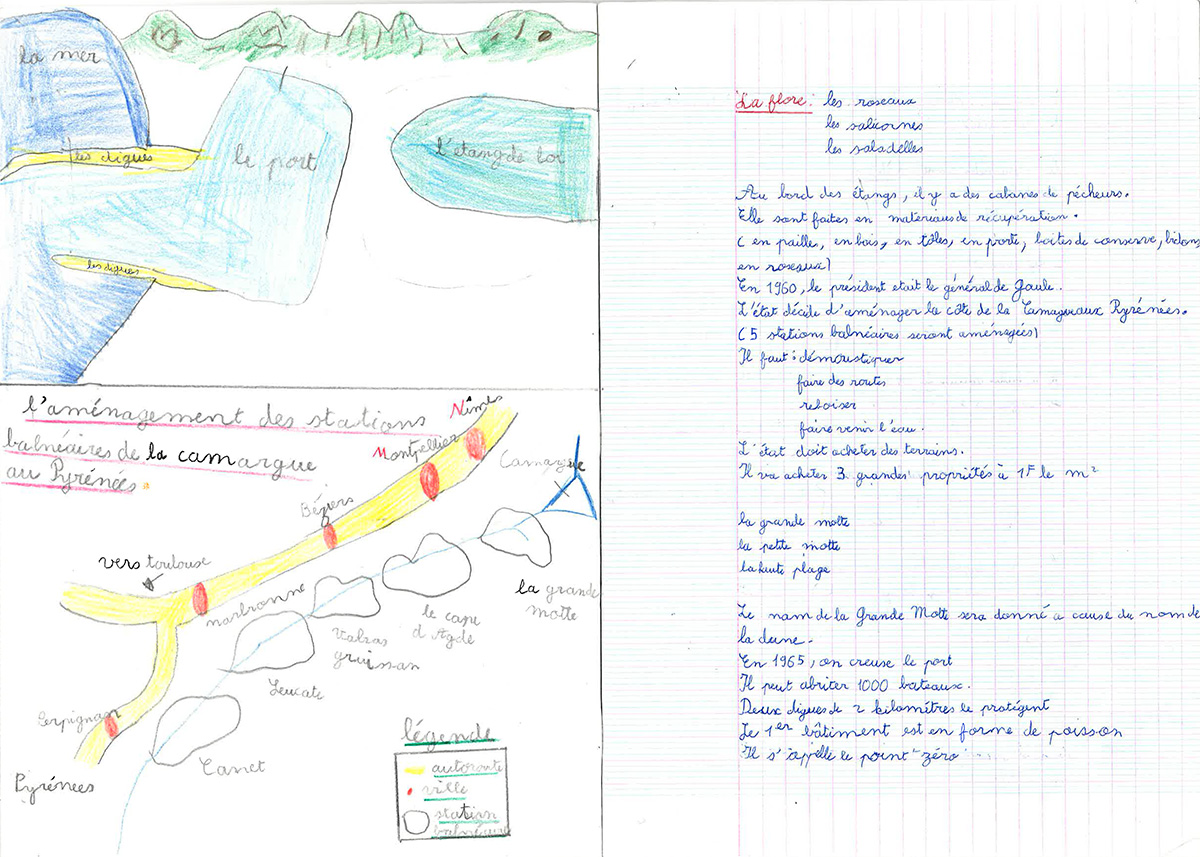 la mer
les digues
le port
l'etang de lor
les digues
l'aménagement des stations
balnéaires de la camargue
au Pyrénées.
Nîmes
Montpellier
Camargue
Béziers
vers toulouse
narbronne
la grande
motte
le cape
d Agde
Valras
gruissan
Leucate
Perpignan
Carnet
Pyrénées
légende
autoroute
ville
station
balnéaire
La flore : les roseaux
les salicornes
les saladelles
Au bord des étangs, il y a des cabanes de pécheurs.
Elle sont faites en materiaus de récupération.
( en paille, en bois, en tôles, en porte, boites de conserve, bidons
en roseaux)
En 1960, le président etait le général de Gaule.
L'état décide d'aménager la côte de la Camague aux Pyrénées.
( 5 stations balnéaires seront aménagées)
Il faut : démoustiquer
faire des routes
reboiser
faire venir l'eau.
L'état doit acheter des terrains.
Il va acheter 3 grandes propriétés à 1F le m²
la grande motte
la petite motte
la haute plage
Le nam de la Grande Motte sera donné a cause du nom de
la dune.
En 1965, on creuse le port
Il peut abriter 1000 bateaux.
Deux digues de 2 kilométres le protégent
Le 1er bâtiment est en forme de poisson
Il s'appelle le point "zéro"